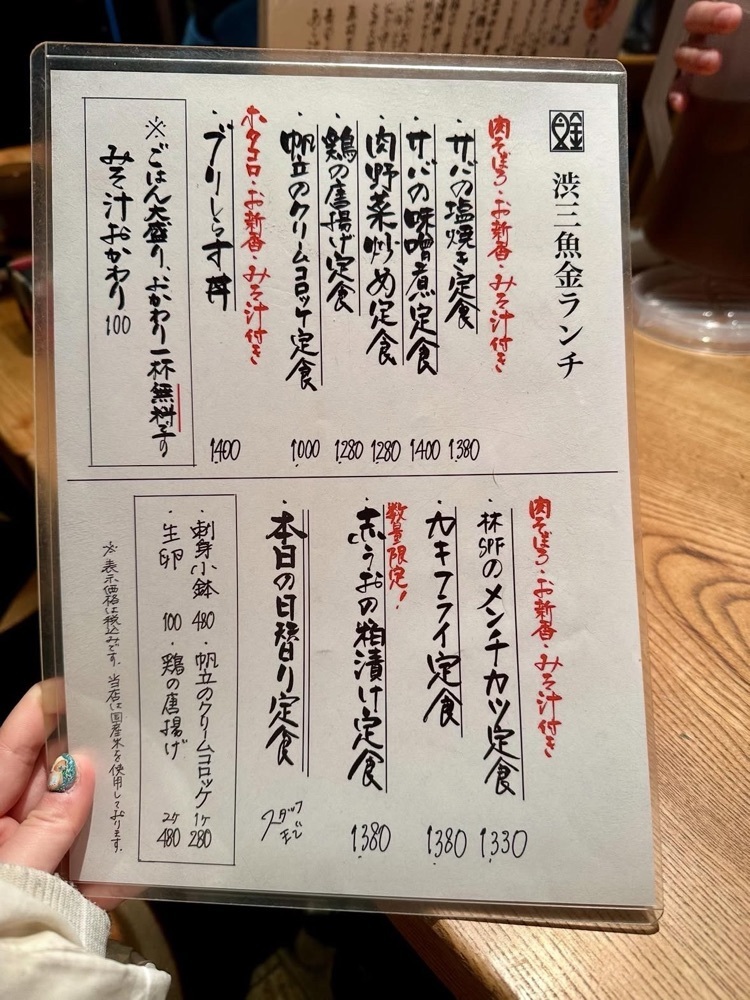 魚金
渋三魚金ランチ
肉そぼろ・お新香・みそ汁付き
・サバの塩焼き定食 1,380
・サバの味噌煮定食 1400
・肉野菜炒め定食 1,280
・鶏の唐揚げ定食 1,280
・帆立のクリームコロッケ定食 1000
ホタコロ・お新香・みそ汁付き
・ブリしらす丼 1,400
※ごはん大盛り、おかわり一杯無料です
みそ汁おかわり 100
肉そぼろ・お新香・みそ汁付き
・林SPFのメンチカツ定食 1,330
・カキフライ定食 1380
数量限定!
・赤うおの粕漬け定食 1,380
・本日の日替り定食 スタッフまで
・刺身小鉢 480 ・帆立のクリームコロッケ 1ヶ 280
・生卵 100 ・鶏の唐揚げ 2ヶ 480
※表示価格は税込みです。当店は国産米を使用しております。